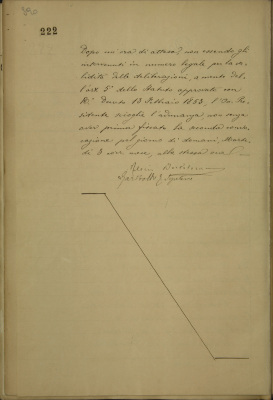 222
Dopo un' ora di attesa, non essendo gli
intervenuti in numero legale per la va-
lidità delle deliberazioni, a mente del-
l'art. 5° dello Statuto approvato con
R.° Decreto 13 Febbraio 1853, il Pre-
sidente scioglie l'adunanza non senza
aver prima fissata la seconda convo-
cazione pel giorno di domani, Marte-
di 3 corr. mese, alla stessa ora.